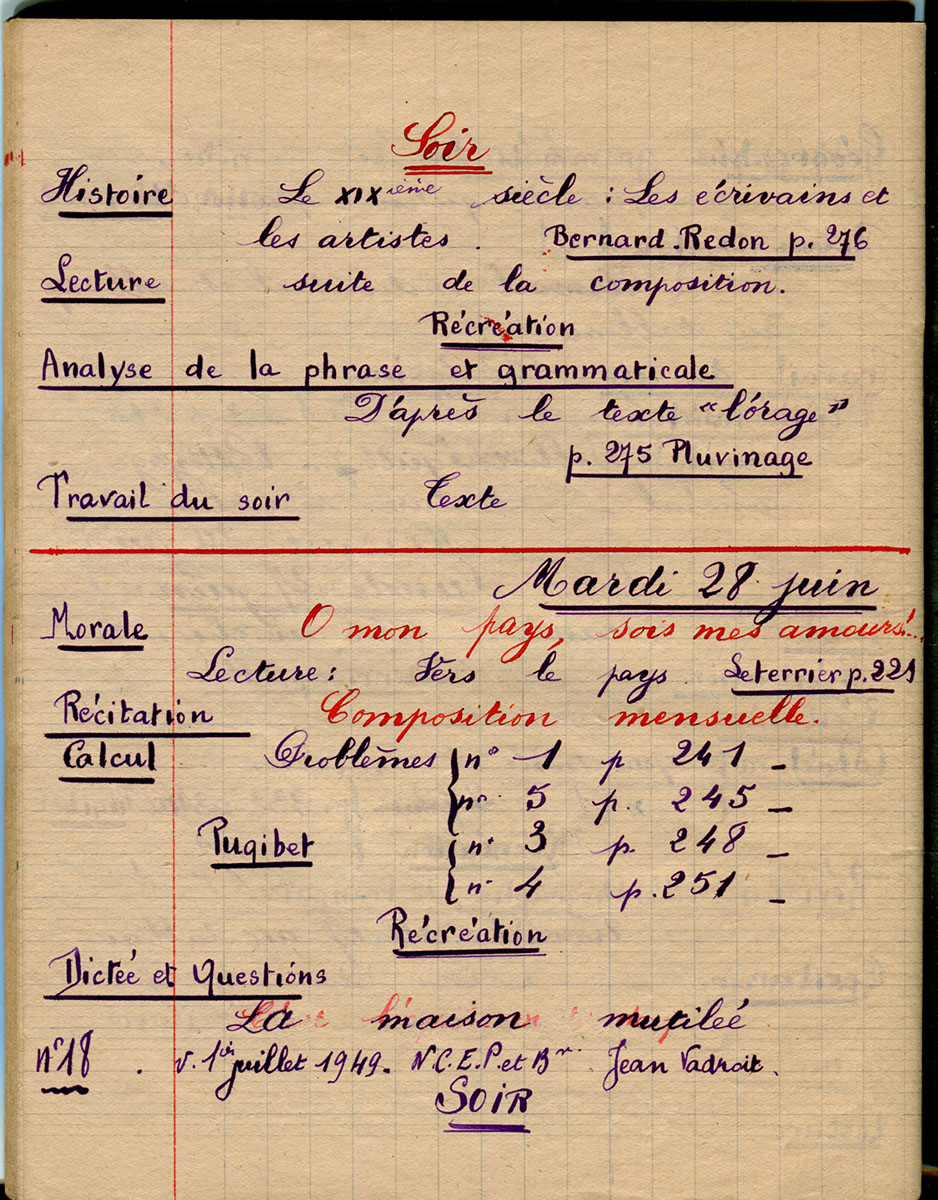 Soir
Histoire Le XIXième siècle : Les écrivains et
les artistes. Bernard.Redon p. 276
Lecture suite de la composition.
Récréation
Analyse de la phrase et grammaticale
D'après le texte "l'orage"
p. 275 Pluvinage
Travail du soir Texte
Mardi 28 juin
Morale O mon pays, sois mes amours!..
Lecture : Vers le pays. Leterrier p. 221
Récitation Composition mensuelle.
Calcul Problèmes n° 1 p 241 _
n° 5 p. 245 _
Pugibet n° 3 p. 248 _
n° 4 p. 251 _
Récréation
Dictée et Questions
La maison mutilée
n° 18 . v. 1er juillet 1949. N.C.E.P. et Br. Jean Vadroit.
SOIR